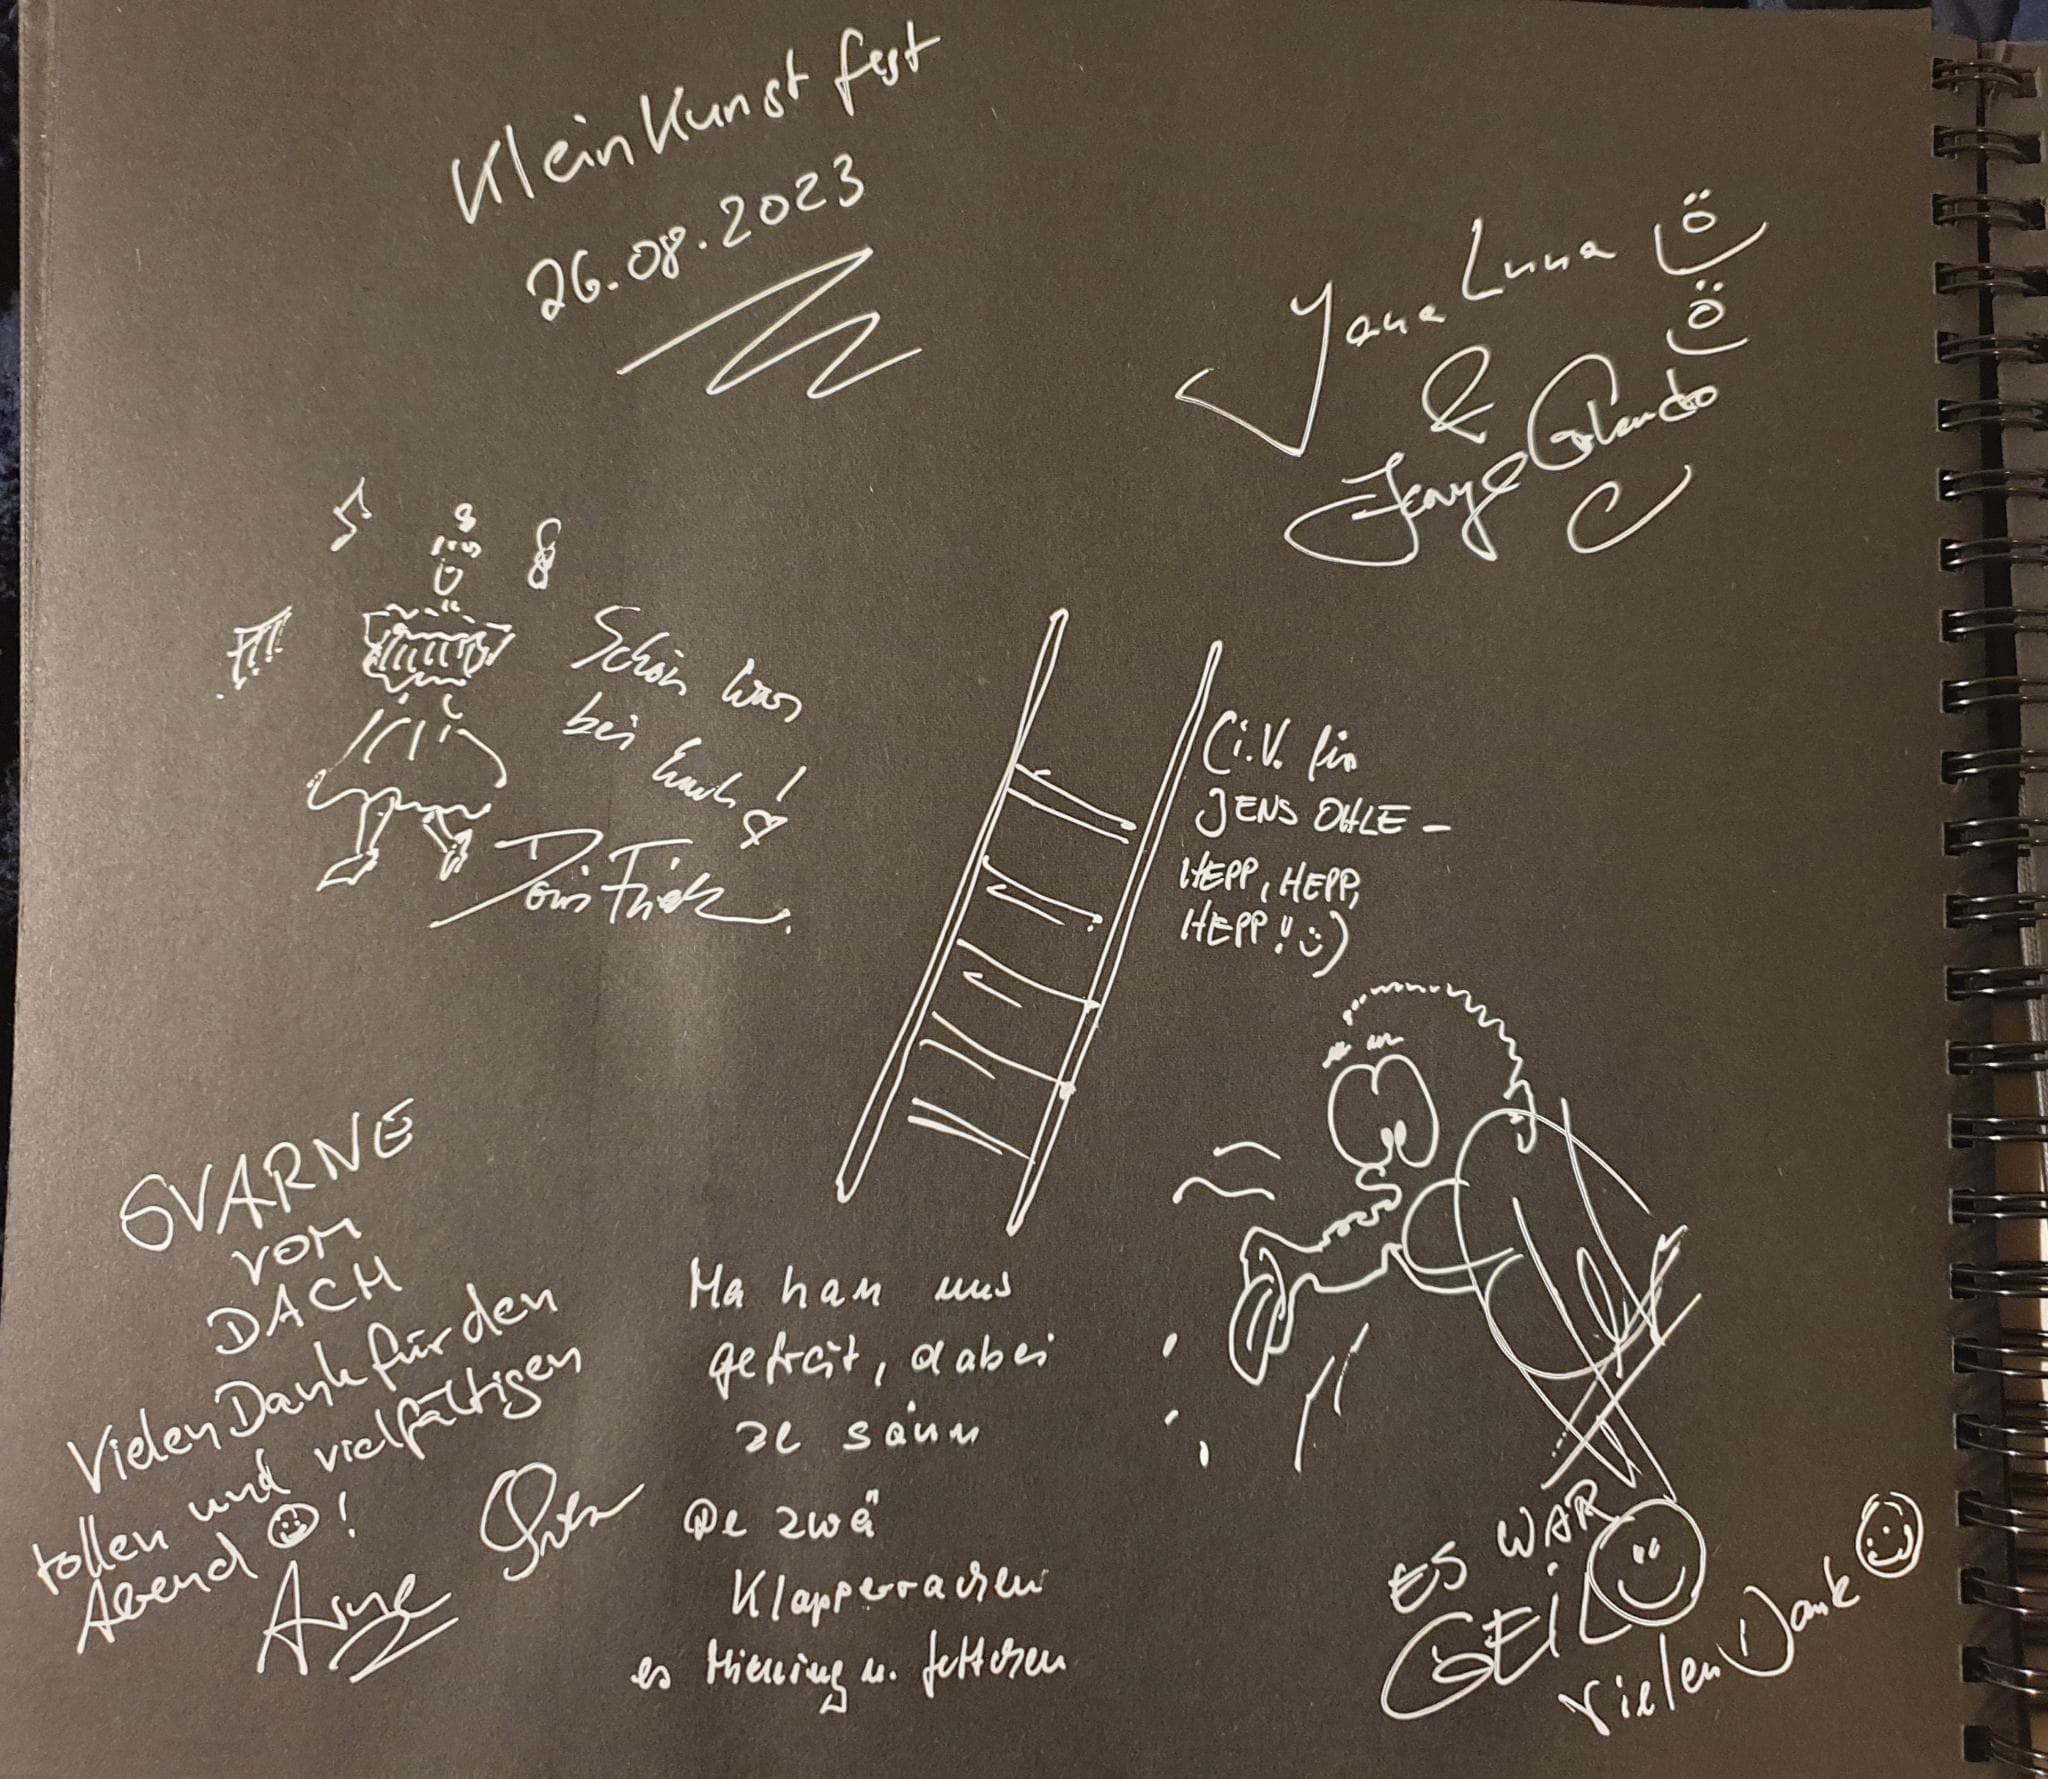 KleinKunstfest
26.08.2023
Jana Luna
&
Schön war's
bei Euch!
(i.V. für
JENS OHLE –
HEPP, HEPP,
HEPP!! :)
VOM
DACH
Vielen Dank für den
tollen und vielfältigen
Abend !
Arne
Ma han uns
gefreit, dabei
ze sänn
De zwä
Klapperrachen
es Hienning u.
ES WAR
GEIL
Vielen Dank